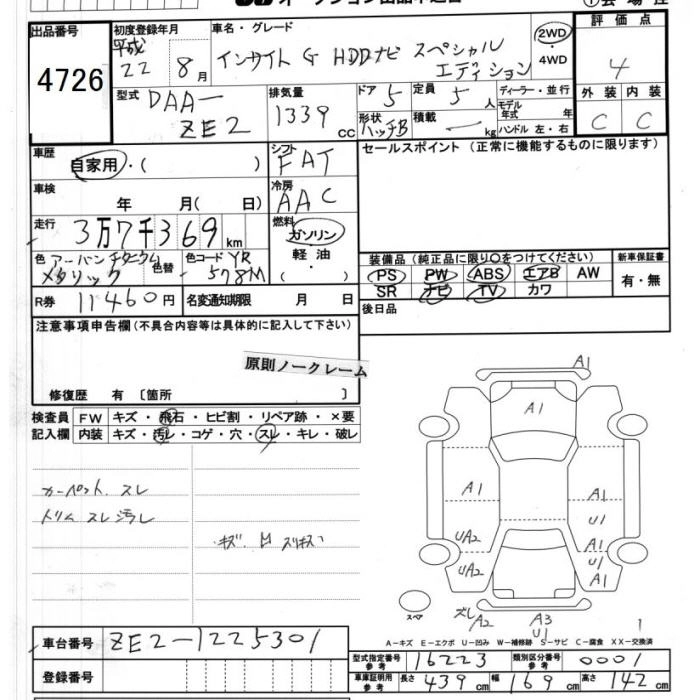 出品番号
4726
初度登録年月
平成
22 8月
車名・グレード
インサイト G HDDナビ スペシャル
エディション
2WD
4WD
評価点
4
外装 内装
C C
型式
DAA-
ZE2
排気量
1339
cc
ドア
5
定員
5人
形状
ハッチB
積載
― kg
ディーラー・並行
モデル年式 年
ハンドル 左・右
車歴
自家用・( )
シフト
FAT
セールスポイント (正常に機能するものに限ります)
車検
年 月( 日)
冷房
AAC
走行
3万7千369km
燃料
ガソリン
軽油
・( )
色 アーバンチタニウム
メタリック
色替
色コード YR
578M
R券 11460円
名変通知期限 月 日
装備品 (純正品に限り○をつけてください)
新車保証書
有・無
PS PW ABS エアB AW
SR ナビ TV カワ
後日品
注意事項申告欄 (不具合内容等は具体的に記入して下さい)
原則ノークレーム
修復歴 有 〔箇所 〕
検査員
記入欄
FW キズ・飛石・ヒビ割・リペア跡・×要
内装 キズ・汚レ・コゲ・穴・スレ・キレ・破レ
カーペット スレ
トリム スレ 汚レ
A1
A1
A1
UA2
UA2
A1
U1
A1
U1
A1
スペア
ズレ
A2
A3
U1
1
A-キズ E-エクボ U-凹み W-補修跡 S-サビ C-腐食 XX-交換済
車台番号 ZE2-1225301
登録番号
型式指定番号 参考 16223
類別区分番号 参考 0001
車庫証明用 参考 長さ 439cm 幅 169cm 高さ 142cm